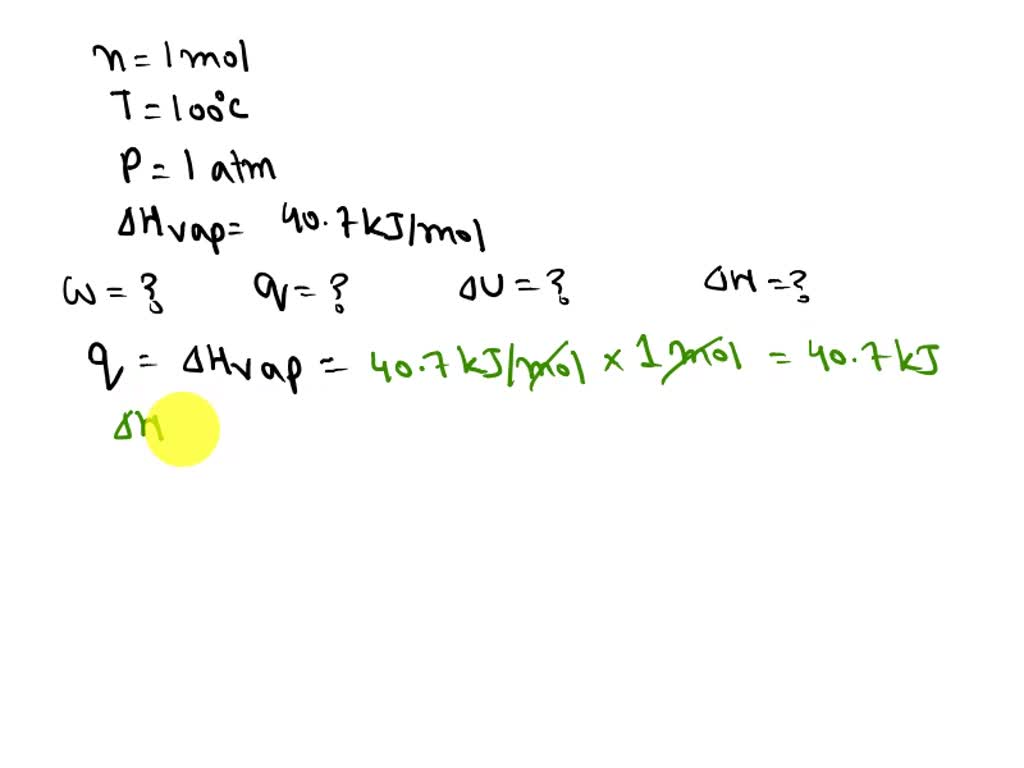 n = 1 mol
T = 100°C
P = 1 atm
ΔHvap = 40.7 kJ/mol
ω = ? q = ? ΔU = ? ΔH = ?
q = ΔHvap = 40.7 kJ/mol × 1 mol = 40.7 kJ
ΔH